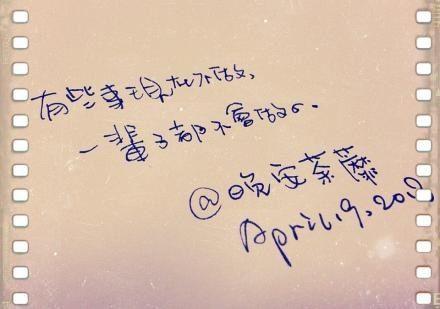 有些事現在不做，
一輩子都不會做。
@晚安茶藤
April.19.20